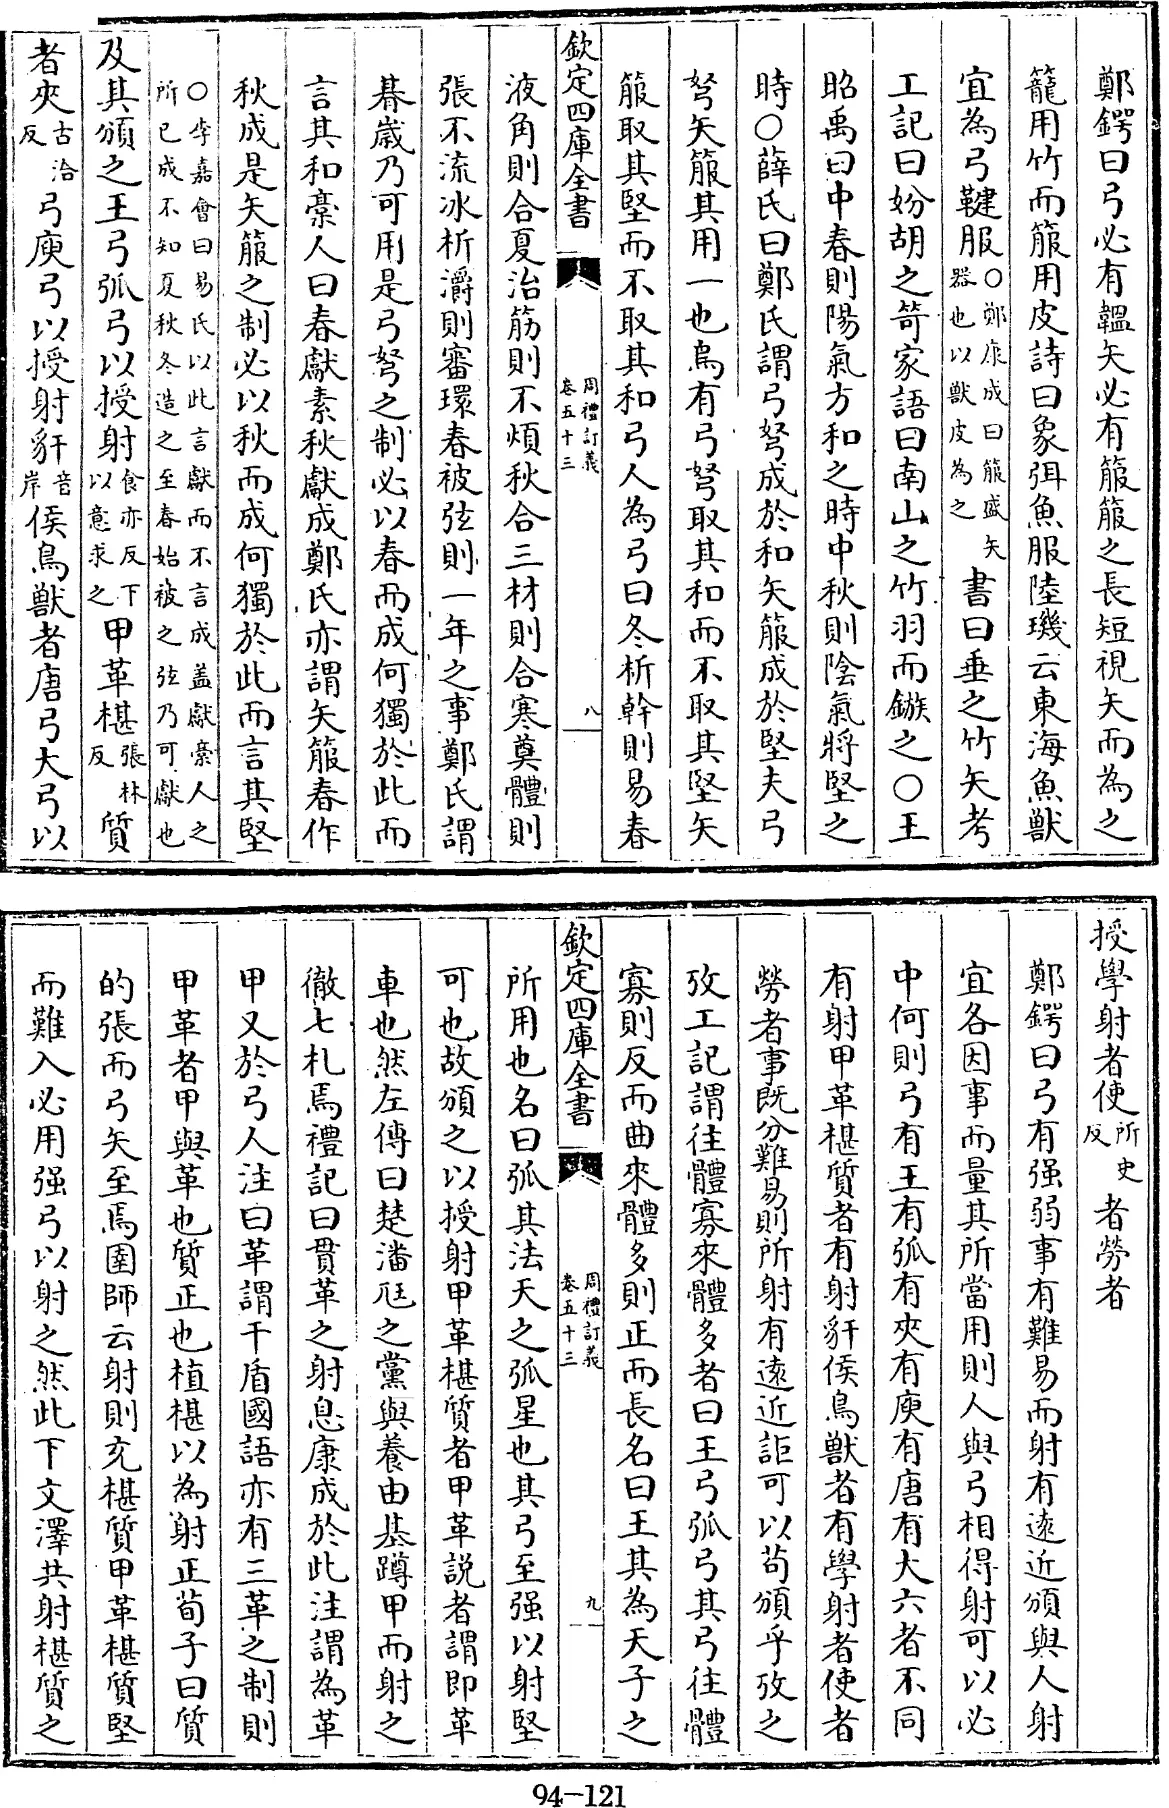 鄭鍔曰弓必有韞矢必有箙箙之長短視矢而為之
籠用竹而箙用皮詩曰象弭魚服陸璣云東海魚獸
宜為弓鞬服○鄭康成曰箙盛矢器也以獸皮為之書曰垂之竹矢考
工記曰妢胡之笴家語曰南山之竹羽而鏃之○王
昭禹曰中春則陽氣方和之時中秋則陰氣將堅之
時○薛氏曰鄭氏謂弓弩成於和矢箙成於堅夫弓
弩矢箙其用一也烏有弓弩取其和而不取其堅矢
箙取其堅而不取其和弓人為弓曰冬析幹則易春
欽定四庫全書
周禮訂義
卷五十三
八
液角則合夏治筋則不煩秋合三材則合寒奠體則
張不流冰析灂則審環春被弦則一年之事鄭氏謂
朞歲乃可用是弓弩之制必以春而成何獨於此而
言其和槀人曰春獻素秋獻成鄭氏亦謂矢箙春作
秋成是矢箙之制必以秋而成何獨於此而言其堅
○李嘉會曰易氏以此言獻而不言成盖獻槀人之
所已成不知夏秋冬造之至春始被之弦乃可獻也
及其頒之王弓弧弓以授射食亦反下以意求之甲革椹張林反質
者夾古洽反弓庾弓以授射豻音岸侯鳥獸者唐弓大弓以
授學射者使所史反者勞者
鄭鍔曰弓有强弱事有難易而射有遠近頒與人射
宜各因事而量其所當用則人與弓相得射可以必
中何則弓有王有弧有夾有庾有唐有大六者不同
有射甲革椹質者有射豻侯鳥獸者有學射者使者
勞者事既分難易則所射有遠近詎可以苟頒乎攷之
攷工記謂往體寡來體多者曰王弓弧弓其弓往體
寡則反而曲來體多則正而長名曰王其為天子之
欽定四庫全書
周禮訂義
卷五十三
九
所用也名曰弧其法天之弧星也其弓至强以射堅
可也故頒之以授射甲革椹質者甲革説者謂即革
車也然左傳曰楚潘尫之黨與養由基蹲甲而射之
徹七札焉禮記曰貫革之射息康成於此注謂為革
甲又於弓人注曰革謂干盾國語亦有三革之制則
甲革者甲與革也質正也植椹以為射正荀子曰質
的張而弓矢至焉圉師云射則充椹質甲革椹質堅
而難入必用强弓以射之然此下文澤共射椹質之
94-121